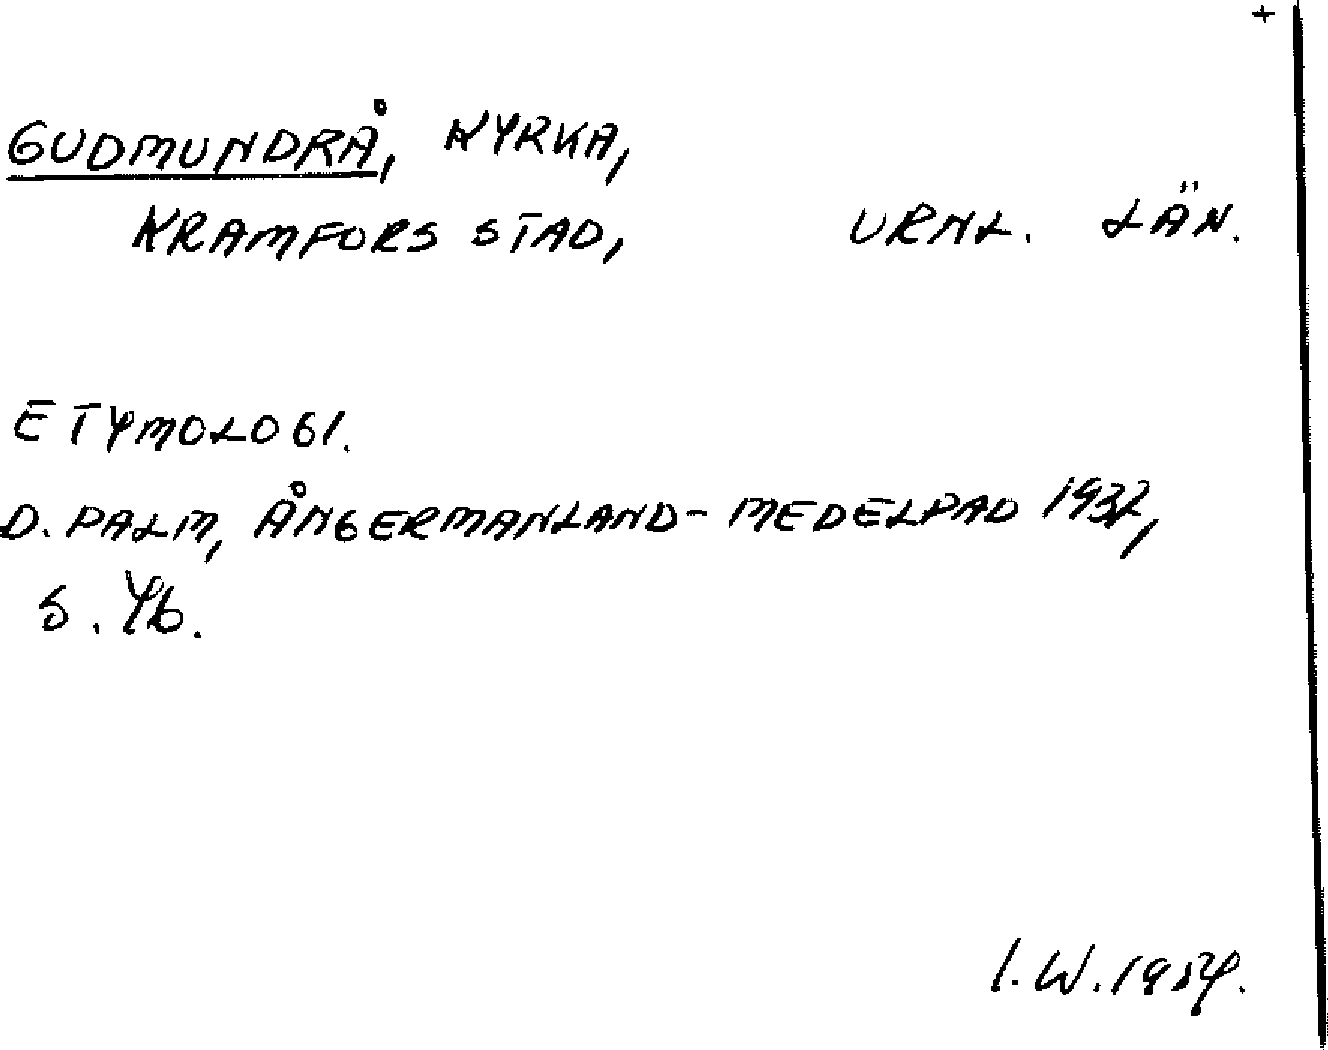 +
GUDMUNDRÅ, KYRKA,
KRAMFORS STAD, VRNL. LÄN.
ETYMOLOGI.
D. PALM, ÅNGERMANLAND-MEDELPAD 1932,
S. 46.
I.W. 1954.